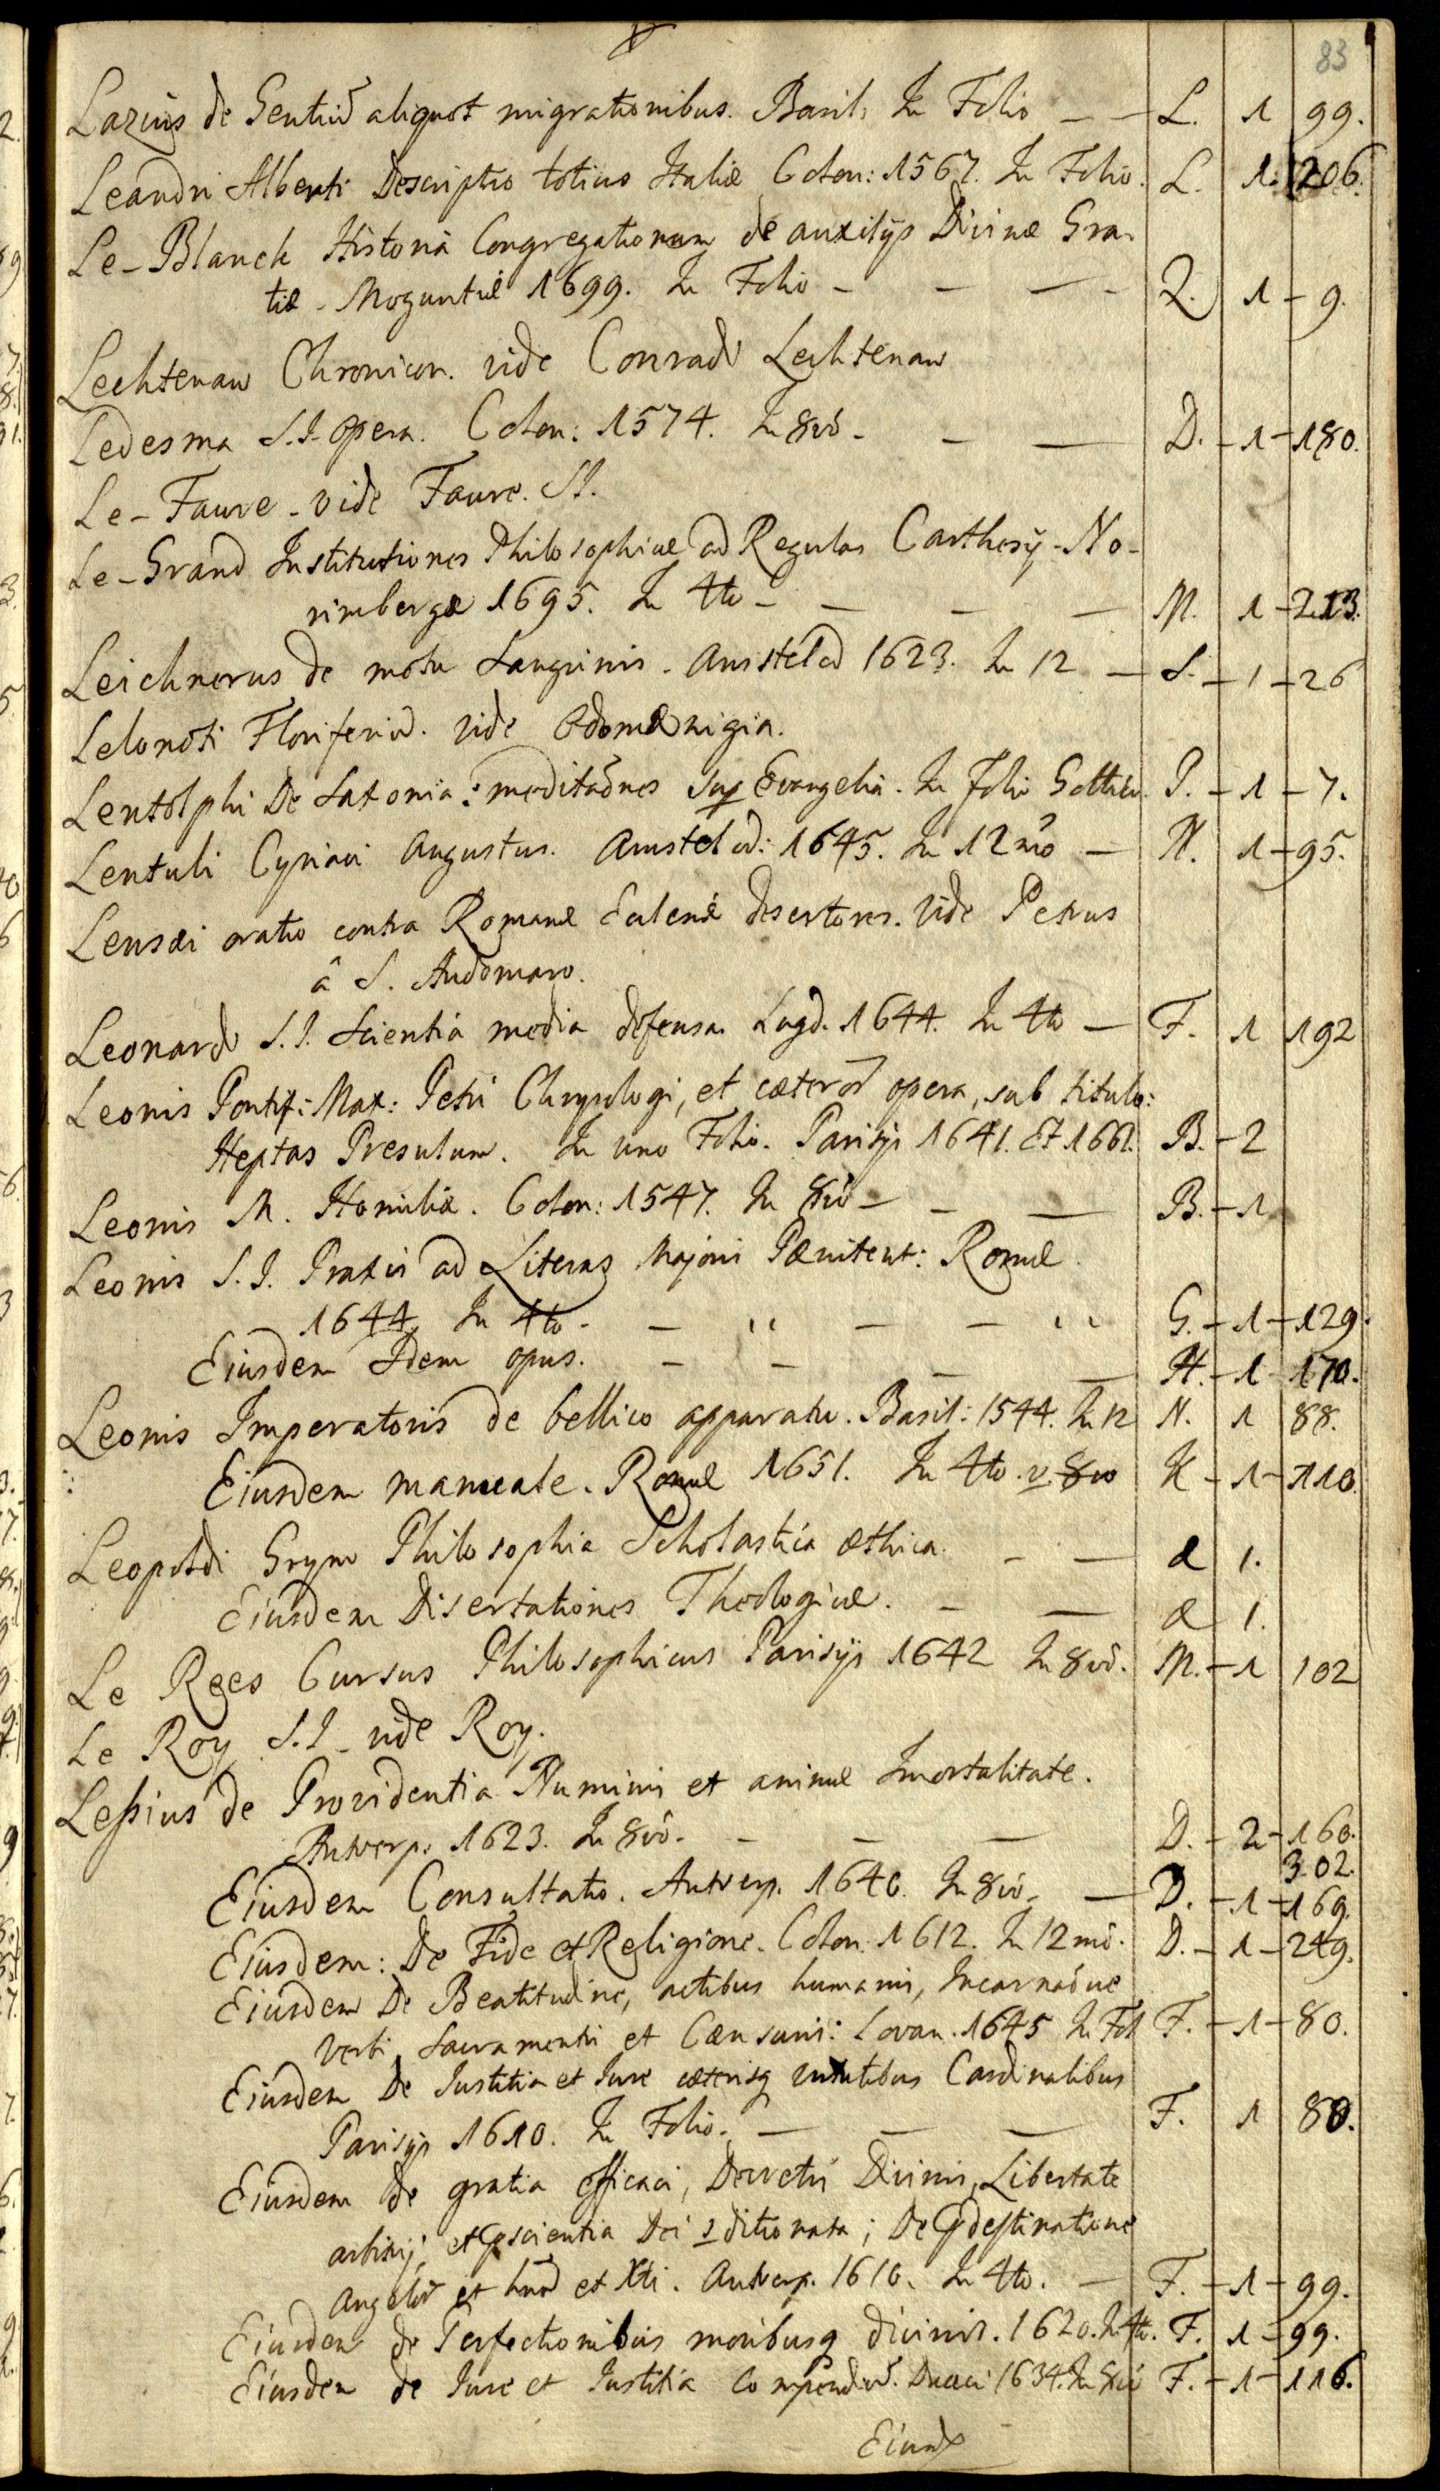 83
Lazius de Gentiu aliquot migrationibus. Basil: In Folio — — L. 1 99.
Leandri Alberti Descriptio totius Italiæ Colon: 1567. In Folio. L. 1. 206.
Le-Blanck Historia Congregationum de auxilijs Divinæ Gra-
tiæ. Moguntiæ 1699. In Folio — — — Q. 1 - 9.
Lechtenaw Chronicon. vide Conradi Lechtenaw
Ledesma S.I. opera. Colon: 1574. In 8vo. — — D. - 1 - 180.
Le-Faure. vide Faure. S.I.
Le-Grand Institutiones Philosophiæ ad Regulas Carthesij. No-
rimbergæ 1695. In 4to — — — — M. 1 - 213.
Leichnerus de motu Sanguinis. Amstelod 1623. In 12 — S. - 1 - 26
Lelonoti Floriferiu. vide
Lentolphi De Saxonia: meditaones sup Evangelia. In Folio P. - 1 - 7.
Lentuli Cyriaci Augustus. Amstelod: 1645. In 12mo — N. 1 - 95.
Lensæi oratio contra Romanæ Eclesiæ desertores. vide Petrus
â S. Audomaro.
Leonardi S.I. Scientia media defensa. Lugd. 1644. In 4to — F. 1 192
Leonis Pontif: Max: Petri Chrysologi, et cæteror opera, sub titulo:
Heptas Presulum. In uno Folio. Parisijs 1641. Et 1661. B. - 2
Leonis M. Homiliæ. Colon: 1547. In 8vo — — — B. - 1
Leonis S.I. Praxis ad Literas Majoris Pænitent: Romæ
1644. In 4to. — ,, — — ,, G. - 1 - 129.
Eiusdem Idem opus. — — — — H. - 1 170.
Leonis Imperatoris de bellico apparatu. Basil: 1544. In 12 N. 1 88.
Eiusdem manuale. Romæ 1651. In 4to. v. 8vo K - 1 - 110.
Leopoldi Grym Philosophia Scholastica æthica. — — æ 1.
Eiusdem Disertationes Theologicæ. — — æ 1.
Le Rees Cursus Philosophicus Parisijs 1642 In 8vo. M. - 1 102
Le Roy S.I. vide Roy.
Leßius de Providentia Numinis et animæ Imortalitate.
Antverp: 1623. In 8vo. — — — D. - 2 - 160.
302.
Eiusdem Consultatio. Antverp. 1640. In 8vo. — D. - 1 - 169.
Eiusdem: De Fide et Religione. Colon. 1612. In 12mo. D. - 1 - 249.
Eiusdem De Beatitudine, actibus humanis, Incarnaone
Verbi, Sacramentis et Censuris: Lovan. 1645 In Fol F. - 1 - 80.
Eiusdem De Iustitia et Iure cæterisq virtutibus Cardinalibus
Parisijs 1610. In Folio. — — — F. 1 80.
Eiusdem de gratia efficaci, Decretis Divinis, Libertate
arbitrij, et pscientia Dei ditionata; De pdestinatione
Angelor et hnod et Xti. Antverp. 1610. In 4to. — F. - 1 - 99.
Eiusdem de Perfectionibus moribusq divinis. 1620. In 4to. F. 1 - 99.
Eiusdem de Iure et Iustitia Compendiu. Duaci 1634. In 8vo F. - 1 - 116.
Eiusd